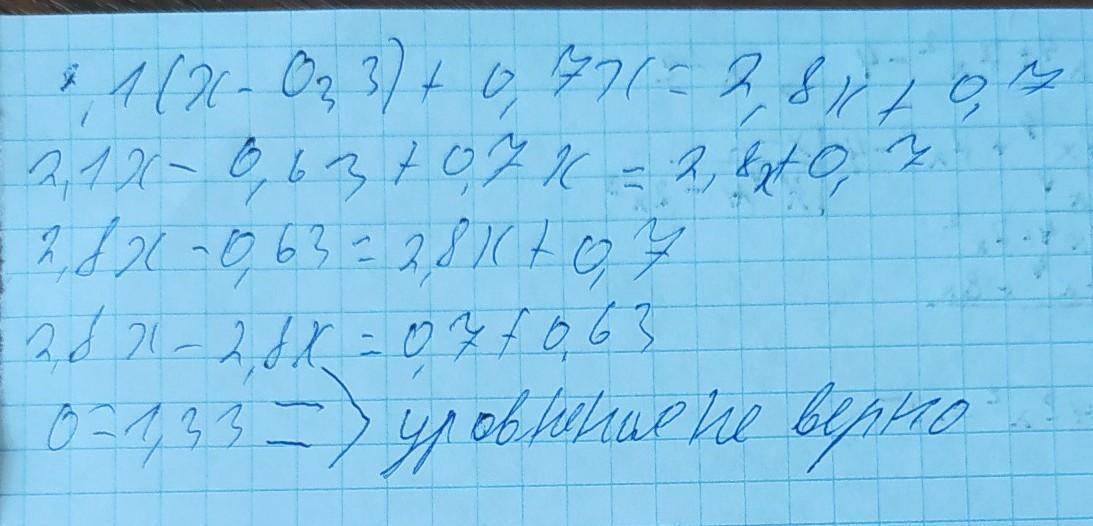 ,1(x - 0,3) + 0,7x = 2,8x + 0,7
2,1x - 0,63 + 0,7x = 2,8x + 0,7
2,8x - 0,63 = 2,8x + 0,7
2,8x - 2,8x = 0,7 + 0,63
0 = 1,33 => уровнение не верно